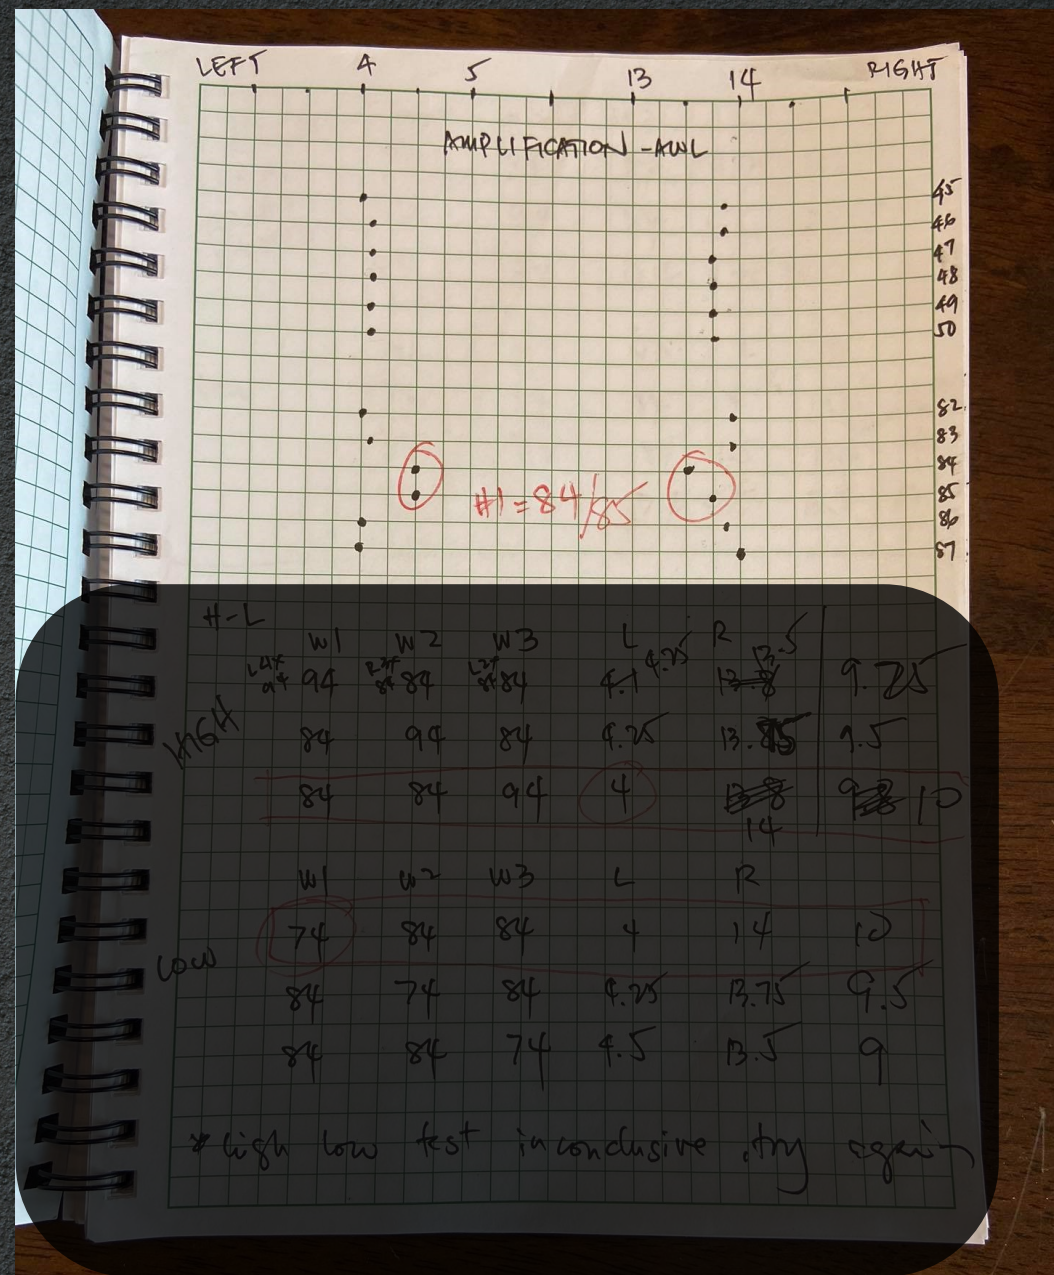 LEFT 4 5 13 14 RIGHT
AMPLIFICATION - AWL
45
46
47
48
49
50
82
83
84
#1 = 84/85
85
86
87
H-L
W1 W2 W3 L R
94 84 84 4.1 4.25 13.8 13.5 9.25
HIGH
84 94 84 4.25 13.75 9.5
84 84 94 4 14 10
W1 W2 W3 L R
74 84 84 4 14 10
LOW
84 74 84 4.25 13.75 9.5
84 84 74 4.5 13.5 9
* high low test inconclusive, try again